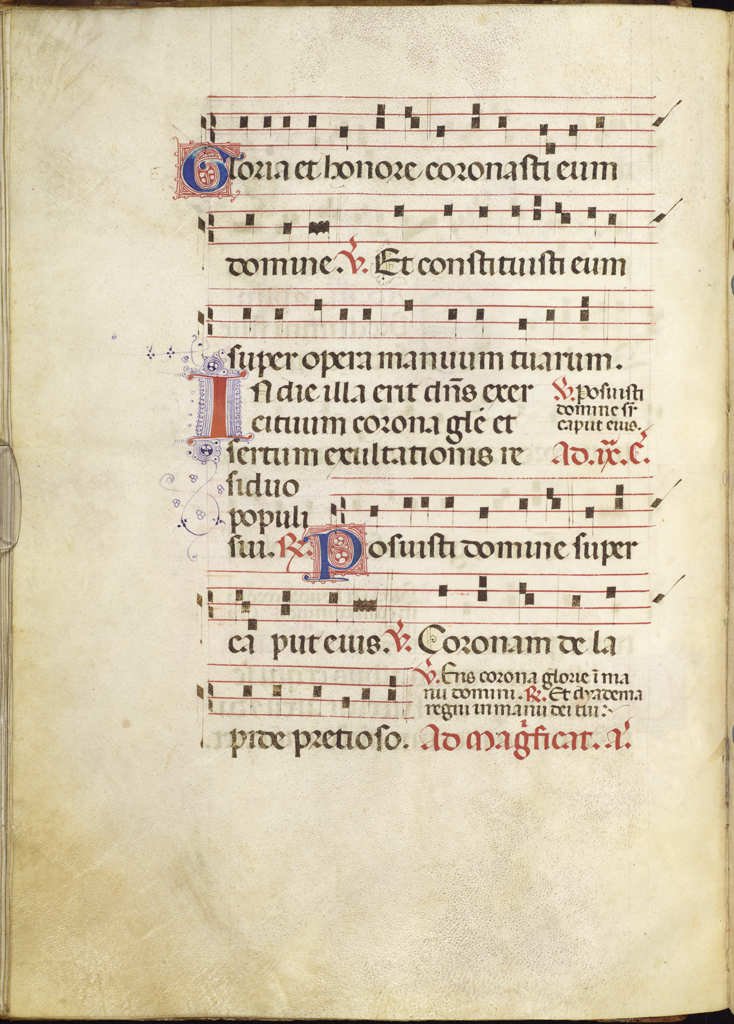 Gloria et honore coronasti eum
domine. V. Et constituisti eum
super opera manuum tuarum.
In die illa erit dñs exer
cituum corona glé et
sertum exultationis re
V. Posuisti
domine sr
caput eius.
Ad. ix. C.
siduo
populi
sui. R. Posuisti domine super
ca put eius. V. Coronam de la
pide pretioso.
V. Eris corona glorie ī ma
nu domini. R. Et dyadema
regni in manu dei tui:
Ad Magficat. A.